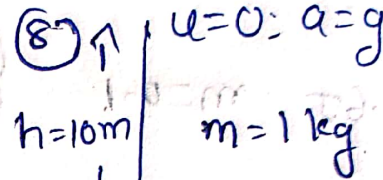 ⑧ ↑ u=0: a=g
h=10m m=1 kg